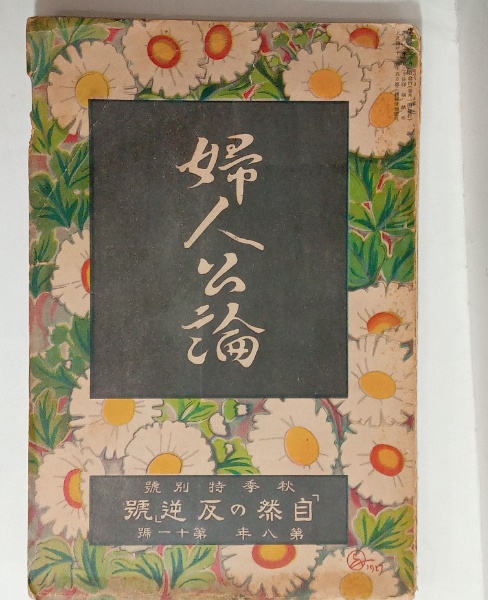 婦人公論
秋季特別號
「自然の反逆」號
第八年 第十一號